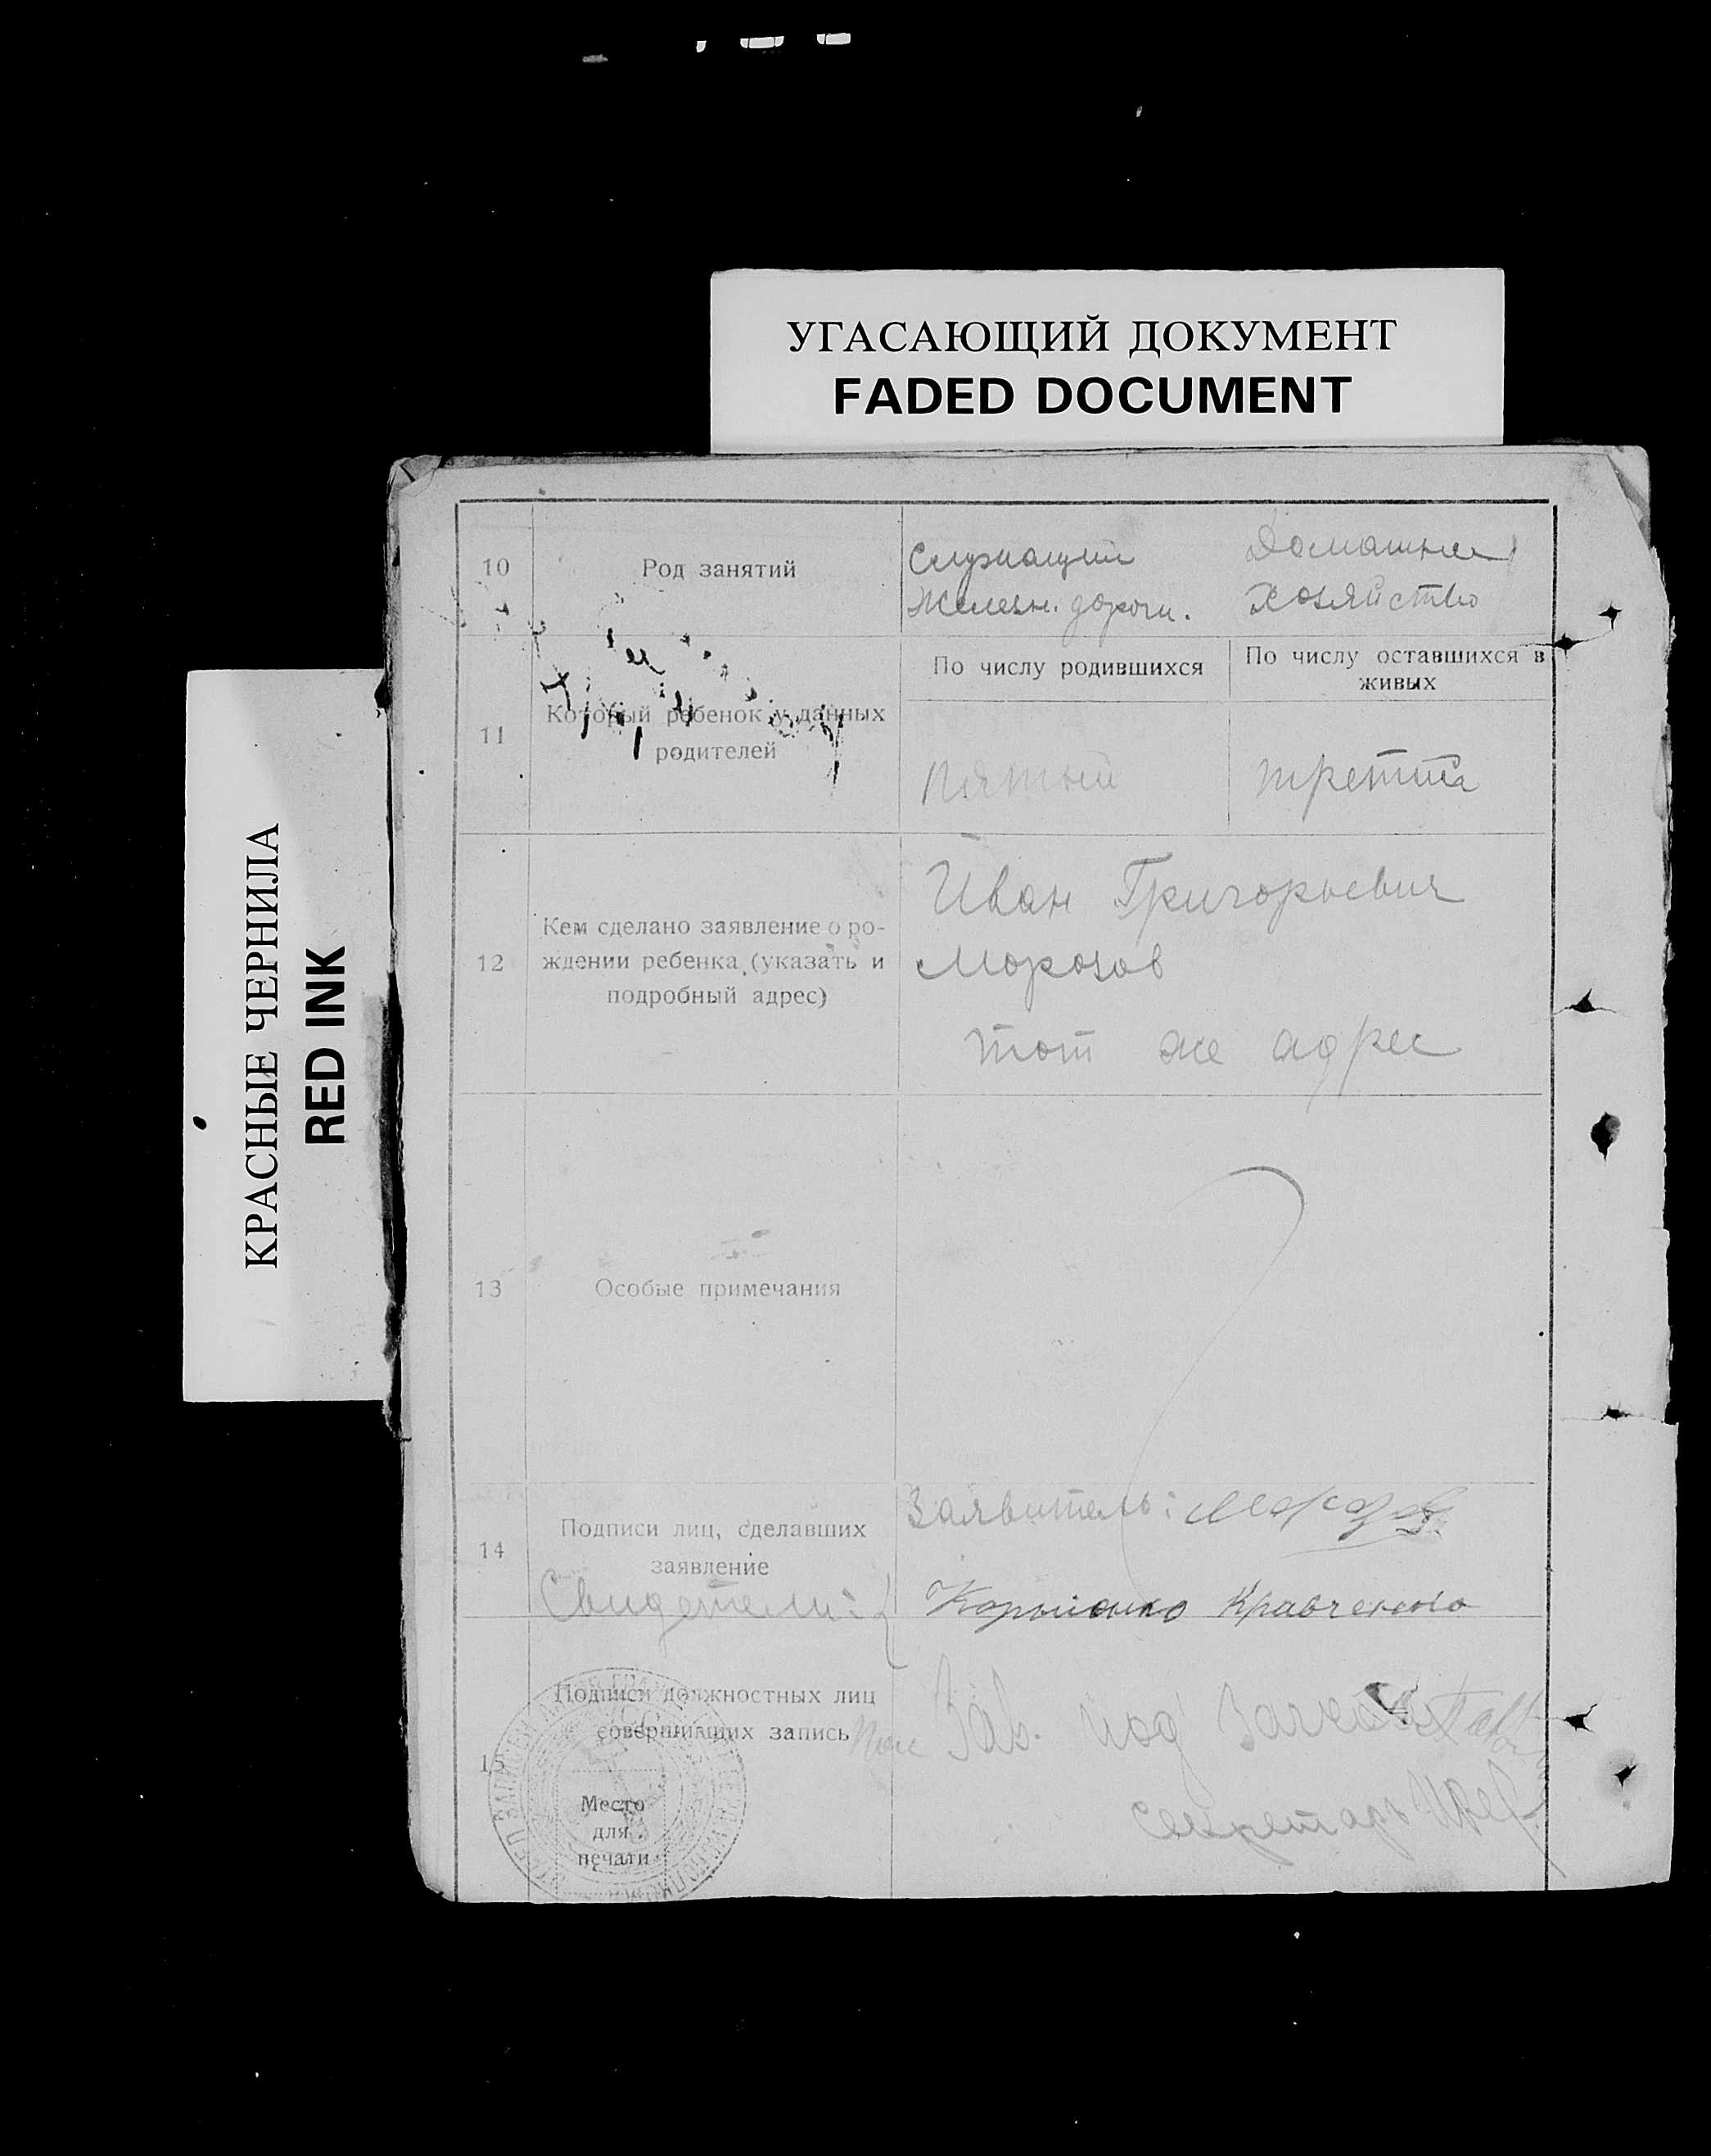 УГАСАЮЩИЙ ДОКУМЕНТ
FADED DOCUMENT
КРАСНЫЕ ЧЕРНИЛА
RED INK
10
Род занятий
Служащий
Железн. дороги.
Домашнее
Хозяйство
11
Который ребенок у данных
родителей
По числу родившихся
По числу оставшихся в
живых
Пятый
третий
12
Кем сделано заявление о ро-
ждении ребенка (указать и
подробный адрес)
Иван Григорьевич
Морозов
тот же адрес
13
Особые примечания
14
Подписи лиц, сделавших
заявление
Свидетели:
Заявитель:
Кравченко
15
Подписи должностных лиц
совершивших запись
Место
для
печати
Зав. под
Секретарь